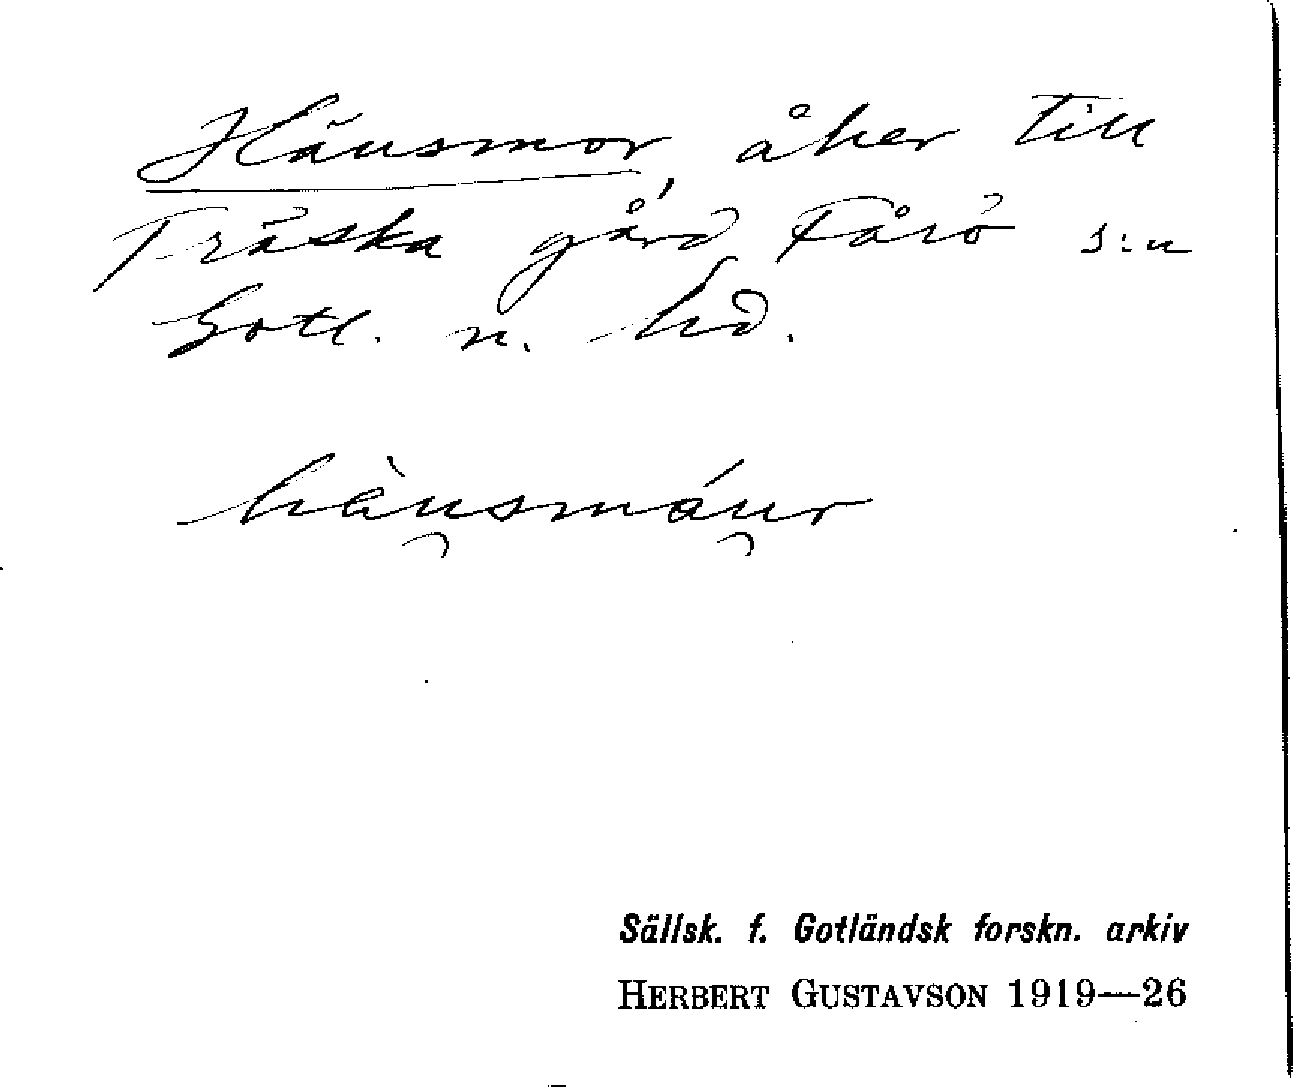 Häusmor åker till
Träska gård Fårö s:n
Gotl. n. hd.
hàu̯smáu̯r
Sällsk. f. Gotländsk forskn. arkiv
HERBERT GUSTAVSON 1919—26